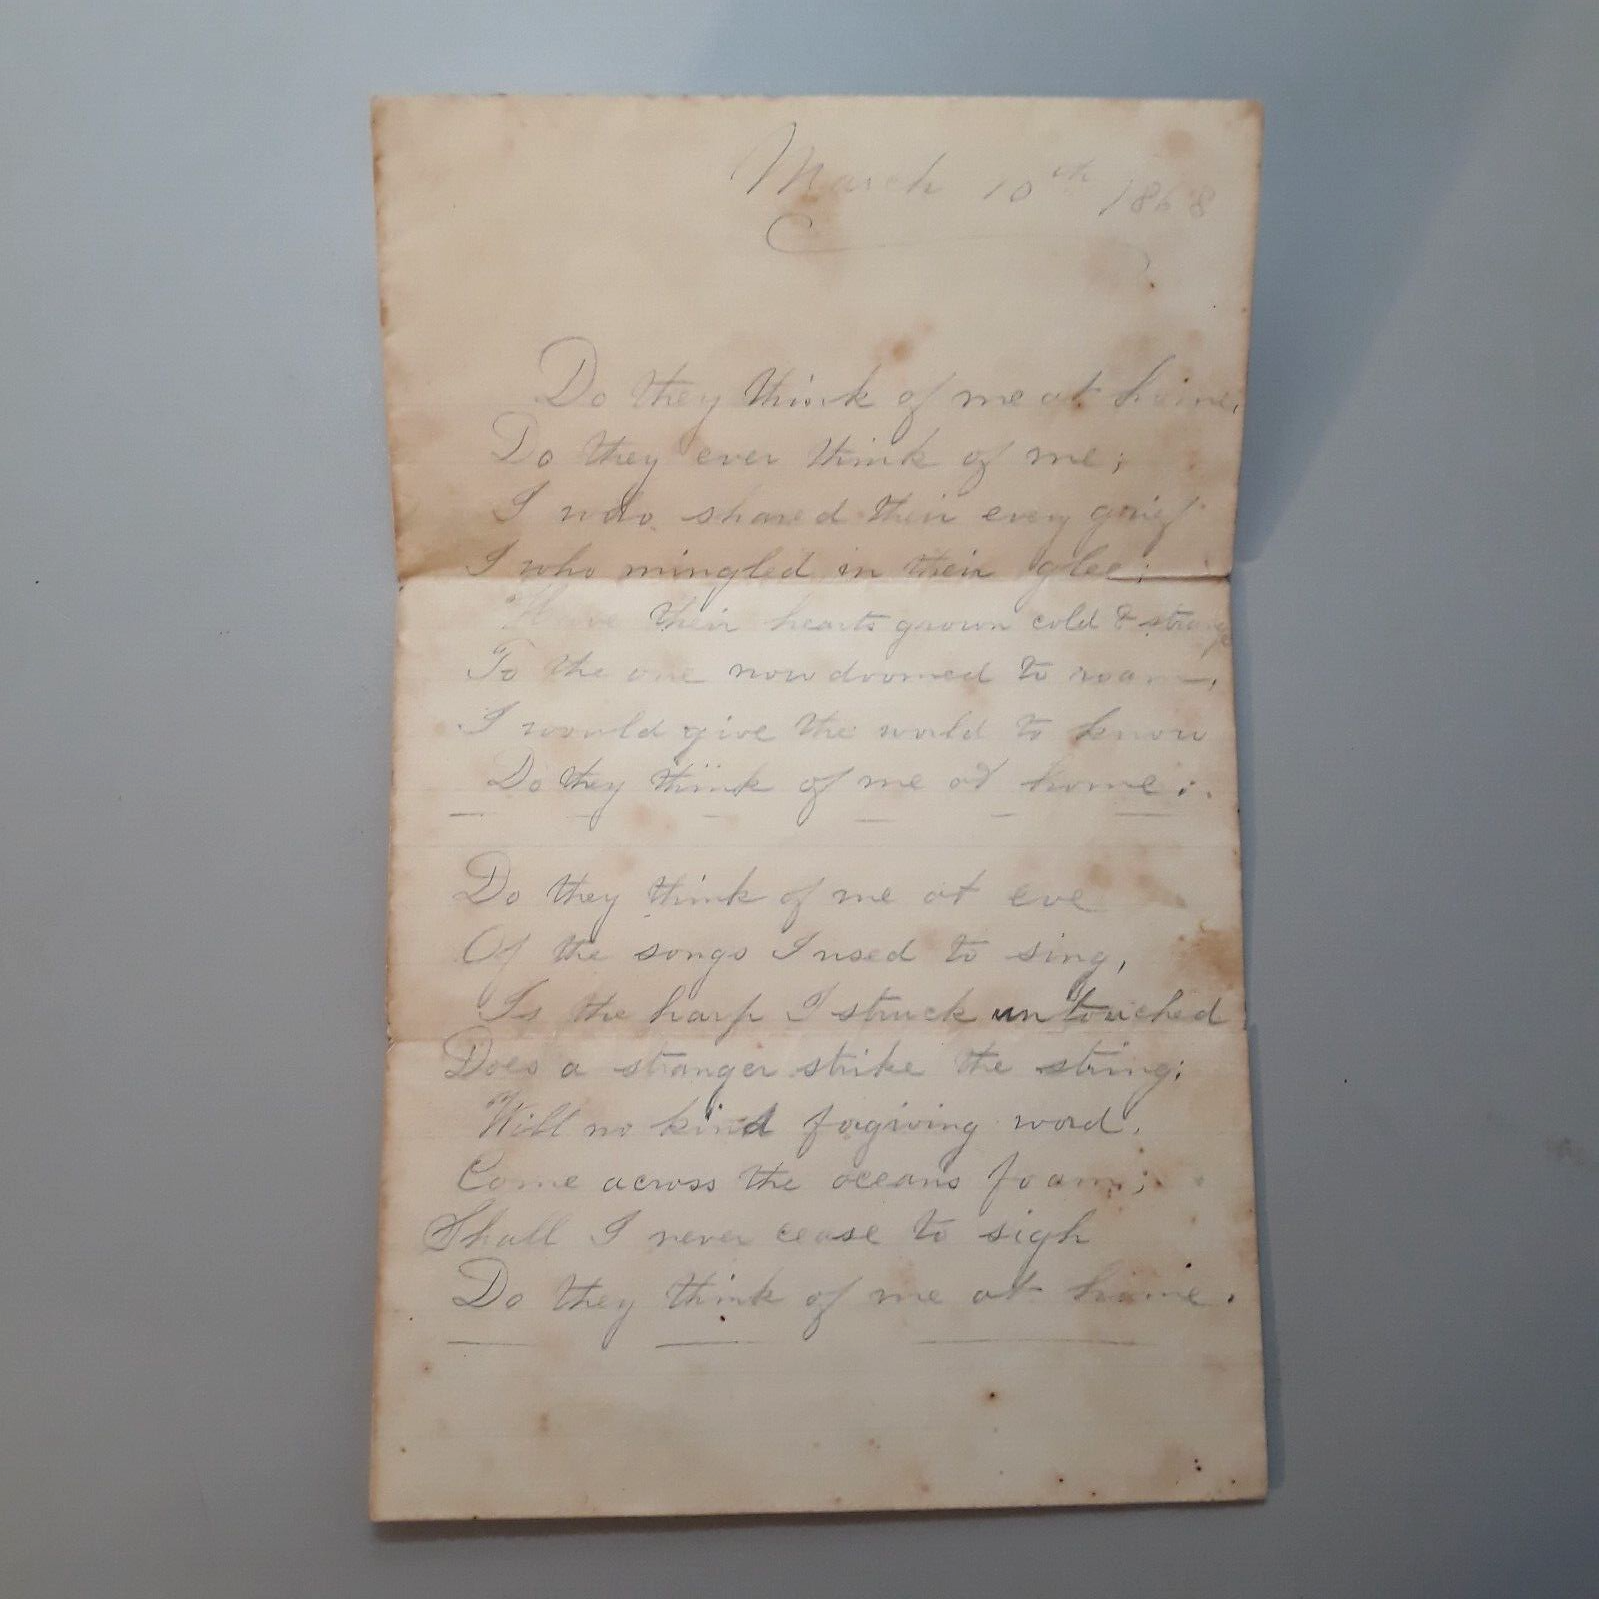 March 10th 1868
Do they think of me at home,
Do they ever think of me;
I who shared their every grief
I who mingled in their glee;
Have their hearts grown cold & strange
To the one now doomed to roam,
I would give the world to know
Do they think of me at home;.
Do they think of me at eve
Of the songs I used to sing,
Is the harp I struck untouched
Does a stranger strike the string;
Will no kind forgiving word,
Come across the oceans foam;
Shall I never cease to sigh
Do they think of me at home.